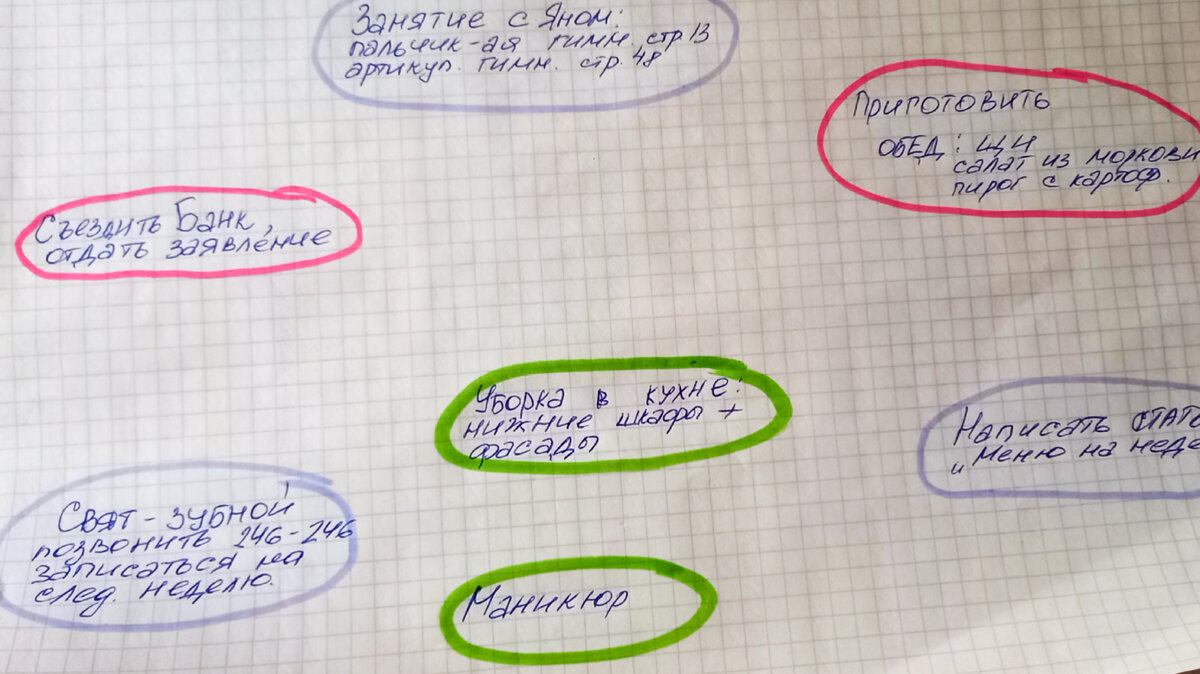 Занятие с Яном:
пальчик-ая гимн. стр 13
артикул. гимн. стр. 48
Приготовить
ОБЕД: ЩИ
салат из моркови
пирог с картоф.
Съездить Банк,
отдать заявление
Уборка в кухне:
нижние шкафы +
фасады
Написать СТАТ
„Меню на неде
Свят - зубной
позвонить 246-246
записаться на
след. неделю.
Маникюр